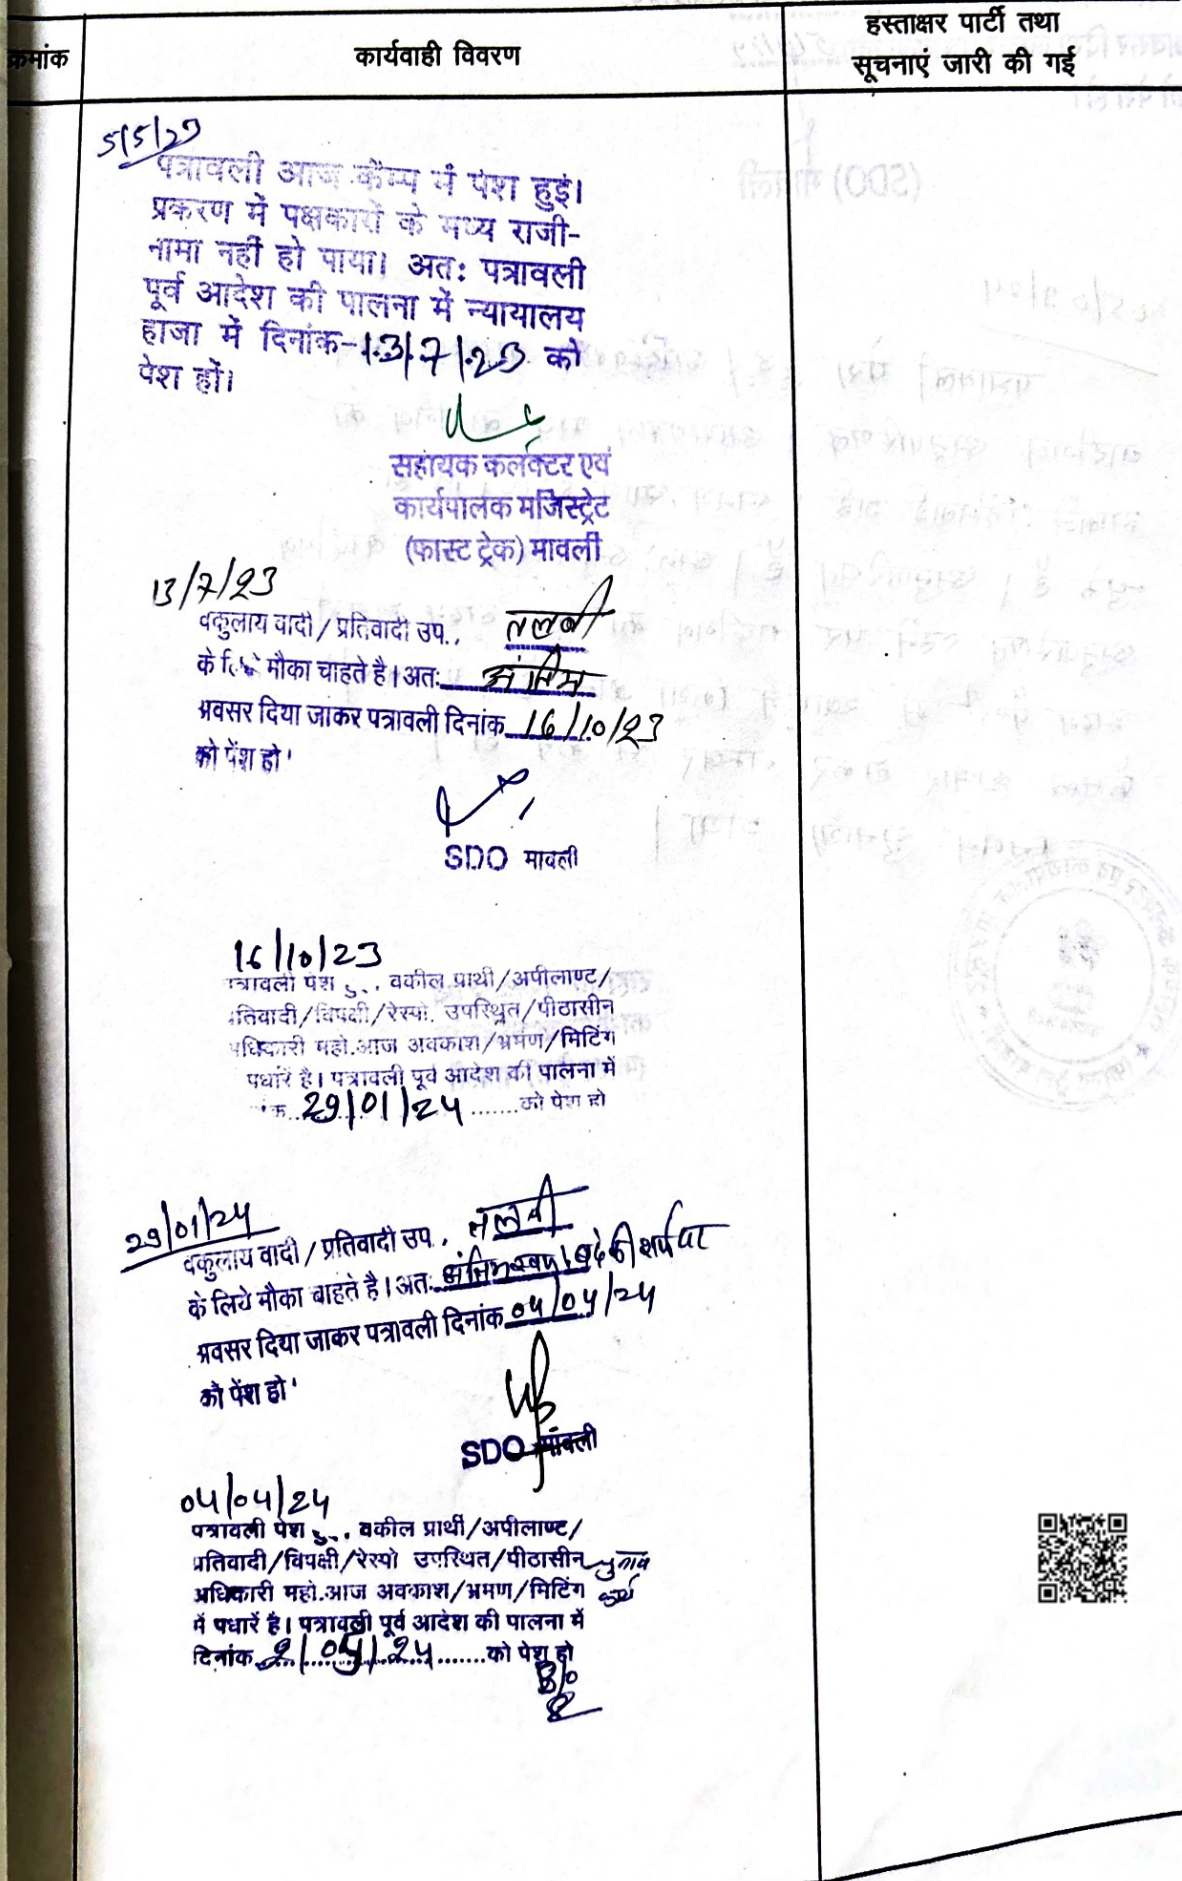 क्रमांक
कार्यवाही विवरण
हस्ताक्षर पार्टी तथा
सूचनाएं जारी की गई
5/5/23
पत्रावली आज कैम्प में पेश हुई।
प्रकरण में पक्षकारों के मध्य राजी-
नामा नहीं हो पाया। अतः पत्रावली
पूर्व आदेश की पालना में न्यायालय
हाजा में दिनांक-13/7/23 को
पेश हों।
सहायक कलेक्टर एवं
कार्यपालक मजिस्ट्रेट
(फास्ट ट्रेक) मावली
13/7/23
वकुलाय वादी/प्रतिवादी उप., तलबी
के लिये मौका चाहते है। अतः अंतिम
अवसर दिया जाकर पत्रावली दिनांक 16/10/23
को पेंश हो'
SDO मावली
16/10/23
पत्रावली पेश वकील प्रार्थी/अपीलाण्ट/
प्रतिवादी/विपक्षी/रेस्पो. उपस्थित/पीठासीन
अधिकारी महो.आज अवकाश/भ्रमण/मिटिंग
पधारें है। पत्रावली पूर्व आदेश की पालना में
क 29/01/24 को पेश हो
29/01/24
वकुलाय वादी/प्रतिवादी उप., तलबी
के लिये मौका चाहते है। अतः अंतिम की शर्त पर
अवसर दिया जाकर पत्रावली दिनांक 04/04/24
को पेंश हो'
SDO मावली
04/04/24
पत्रावली पेश वकील प्रार्थी/अपीलाण्ट/
प्रतिवादी/विपक्षी/रेस्पो उपस्थित/पीठासीन चुनाव
अधिकारी महो.आज अवकाश/भ्रमण/मिटिंग कार्य
में पधारें है। पत्रावली पूर्व आदेश की पालना में
दिनांक 2/05/24 को पेश हो